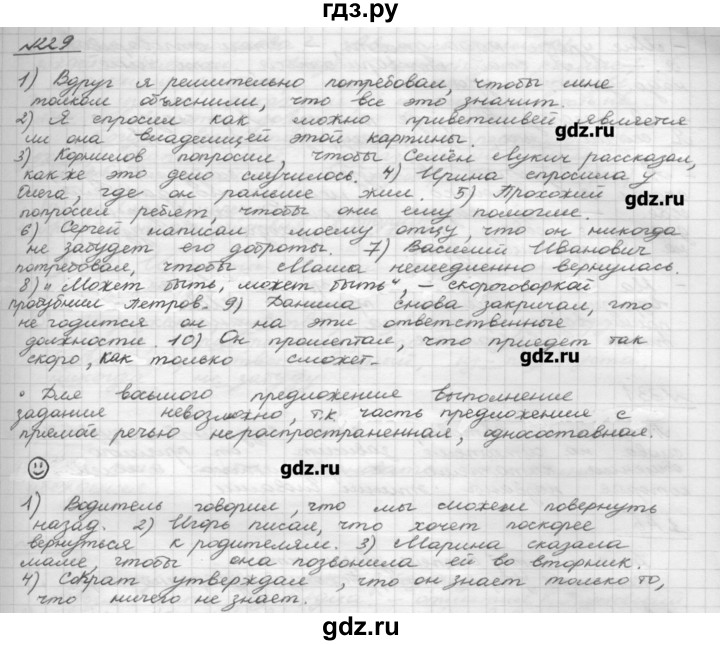 гдз.ру
№229
1) Вдруг я решительно потребовал, чтобы мне
толком объяснили, что все это значит.
2) Я спросил как можно приветливей является
ли она владелицей этой картины.
gdz.ru
3) Корнилов попросил, чтобы Семён Лукич рассказал,
как же это дело случилось. 4) Ирина спросила у
Олега, где он раньше жил. 5) Прохожий
gdz.ru
попросил ребят, чтобы они ему помогли.
6) Сергей написал моему отцу, что он никогда
не забудет его доброты. 7) Василий Иванович
потребовал, чтобы Маша немедленно вернулась.
8) „Может быть, может быть“, – скороговоркой
пробубнил Петров. 9) Данила снова закричал, что
не годится он на эти ответственные
должности. 10) Он прошептал, что приедет так
скоро, как только сможет.
gdz.ru
• Для восьмого предложения выполнение
задания невозможно, т.к часть предложения с
прямой речью нераспространенная, односоставная.
gdz.ru
1) Водитель говорил, что мы можем повернуть
назад. 2) Игорь писал, что хочет поскорее
вернуться к родителям. 3) Марина сказала
маме, чтобы она позвонила ей во вторник.
4) Сократ утверждал, что он знает только то,
что ничего не знает.
gdz.ru
gdz.ru